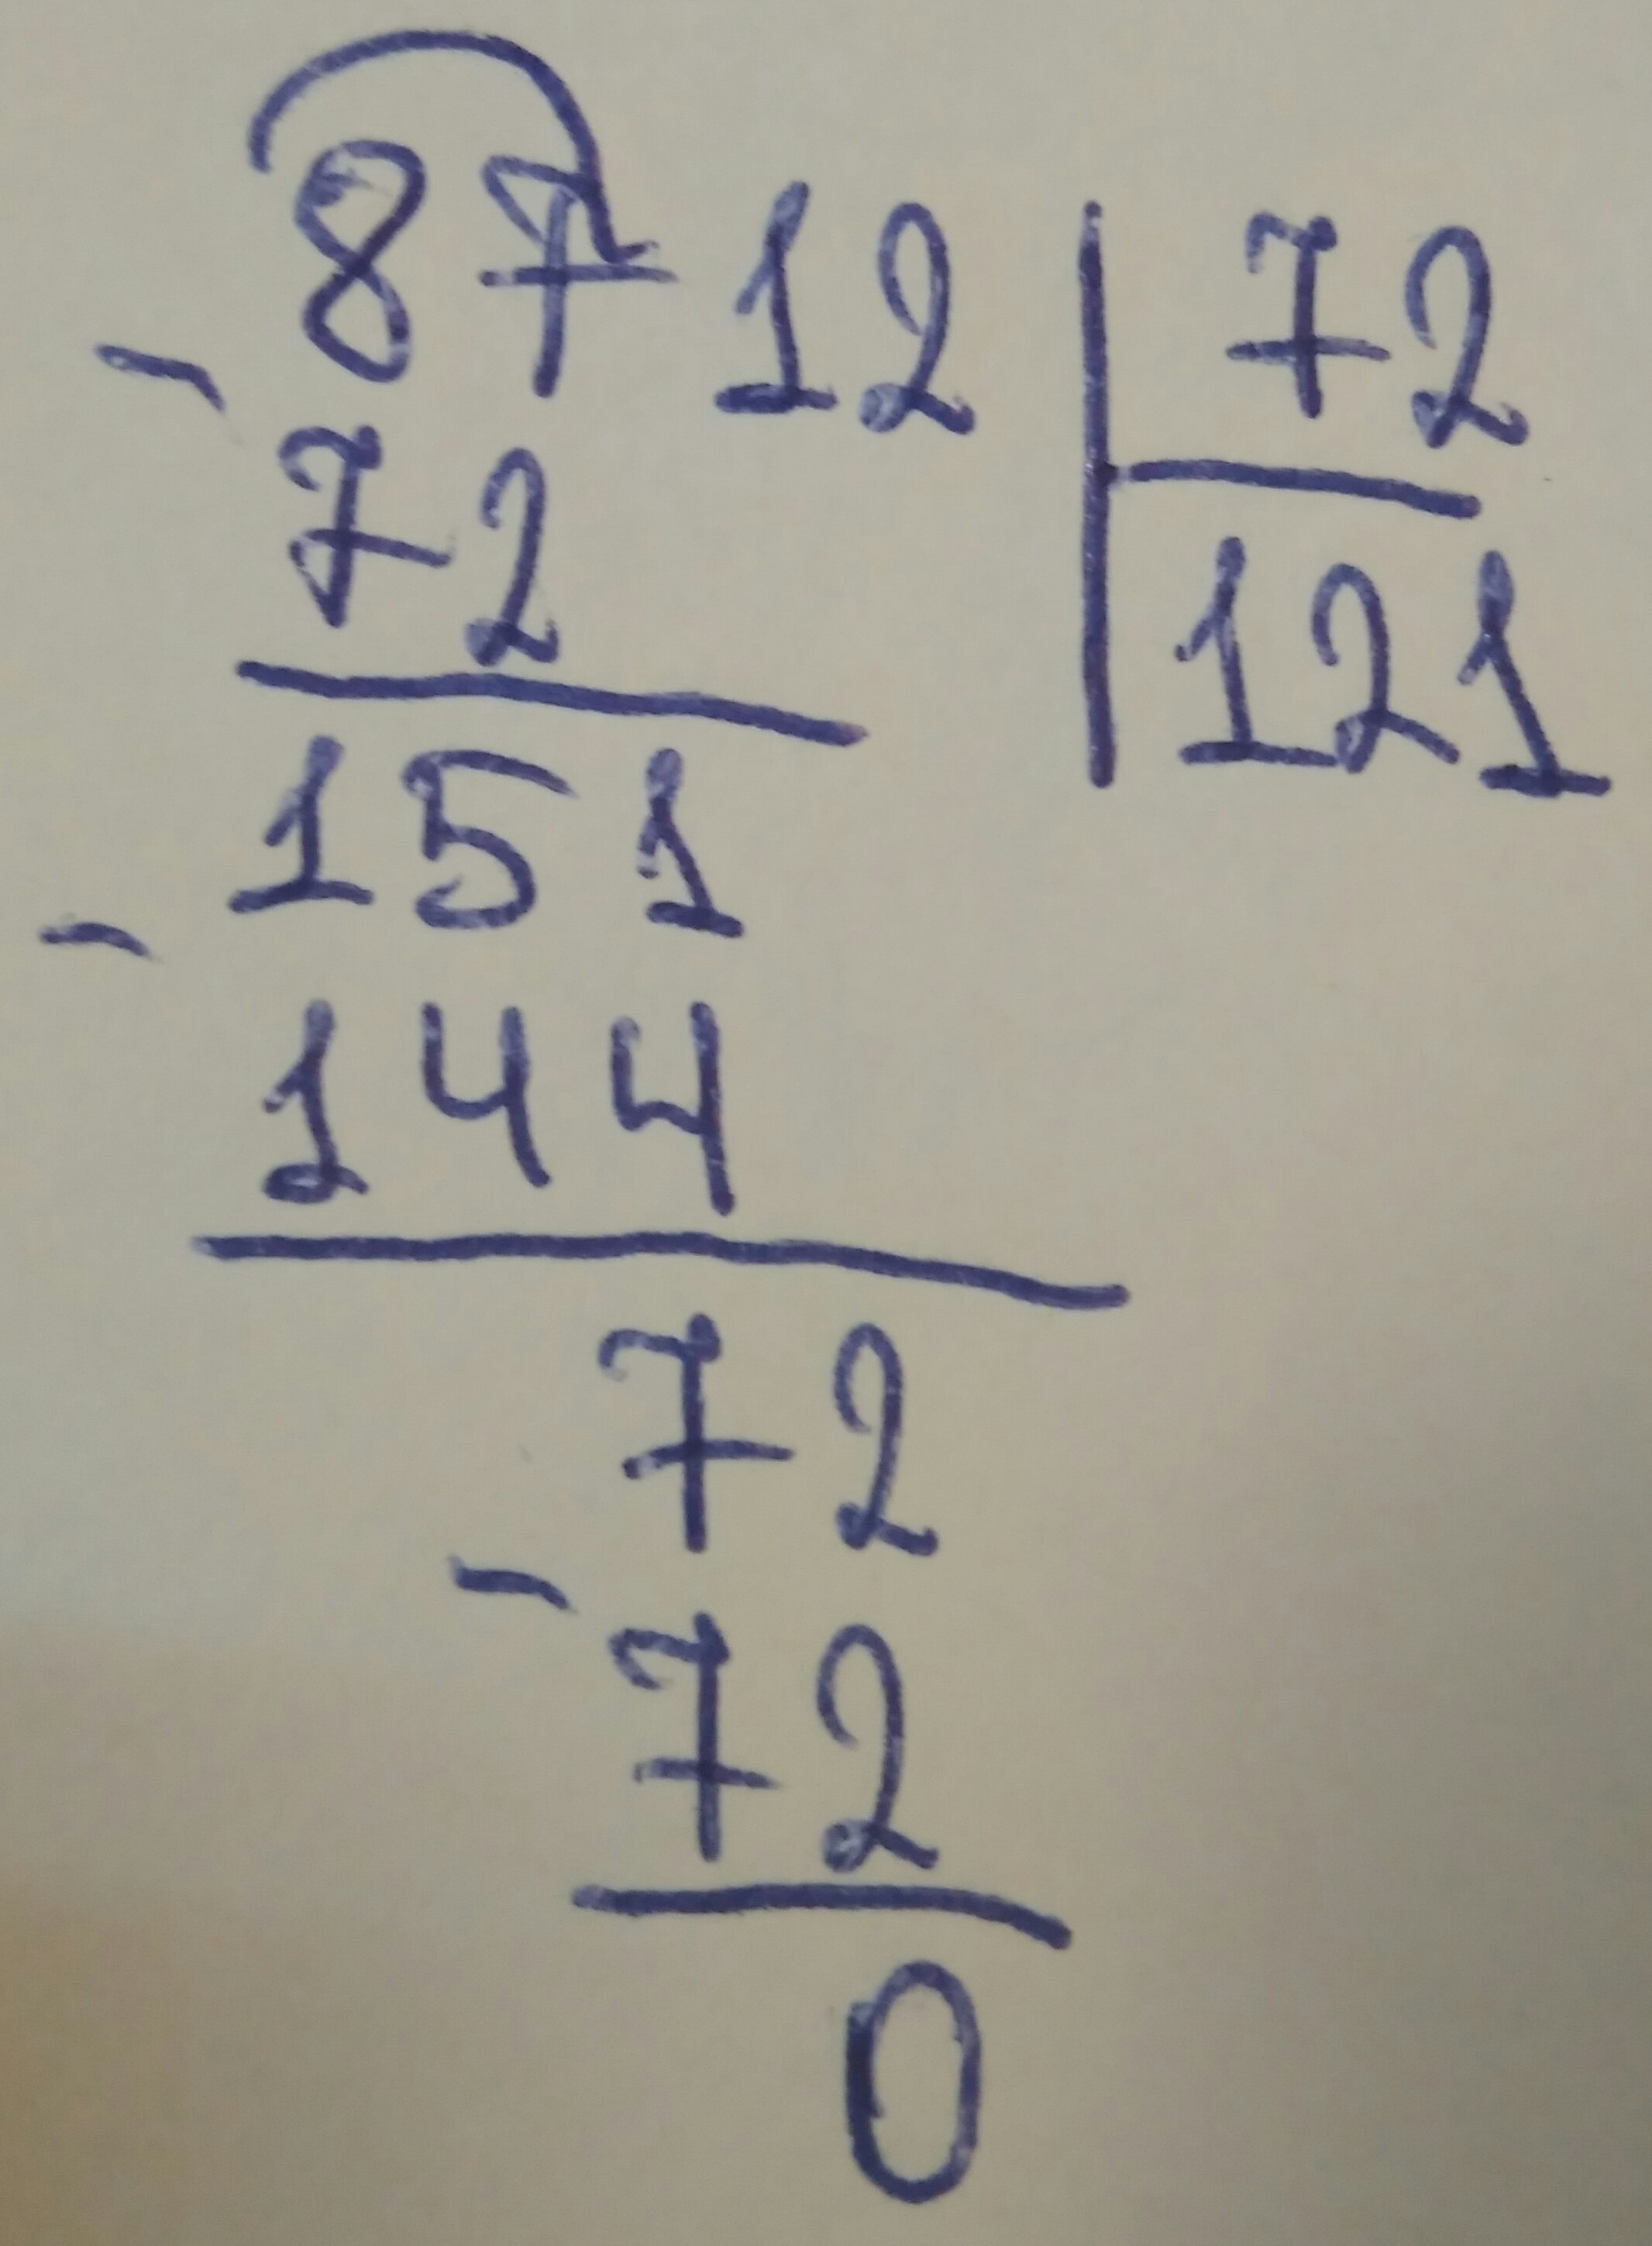 8712 72
- 72 121
151
- 144
72
- 72
0